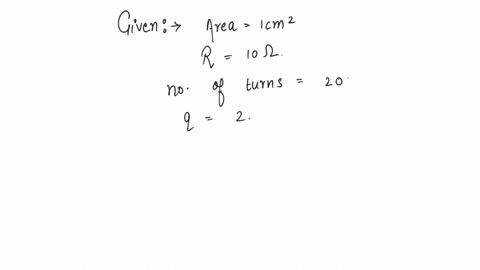 Given:→ Area = 1cm²
R = 10 Ω.
no. of turns = 20.
q = 2.